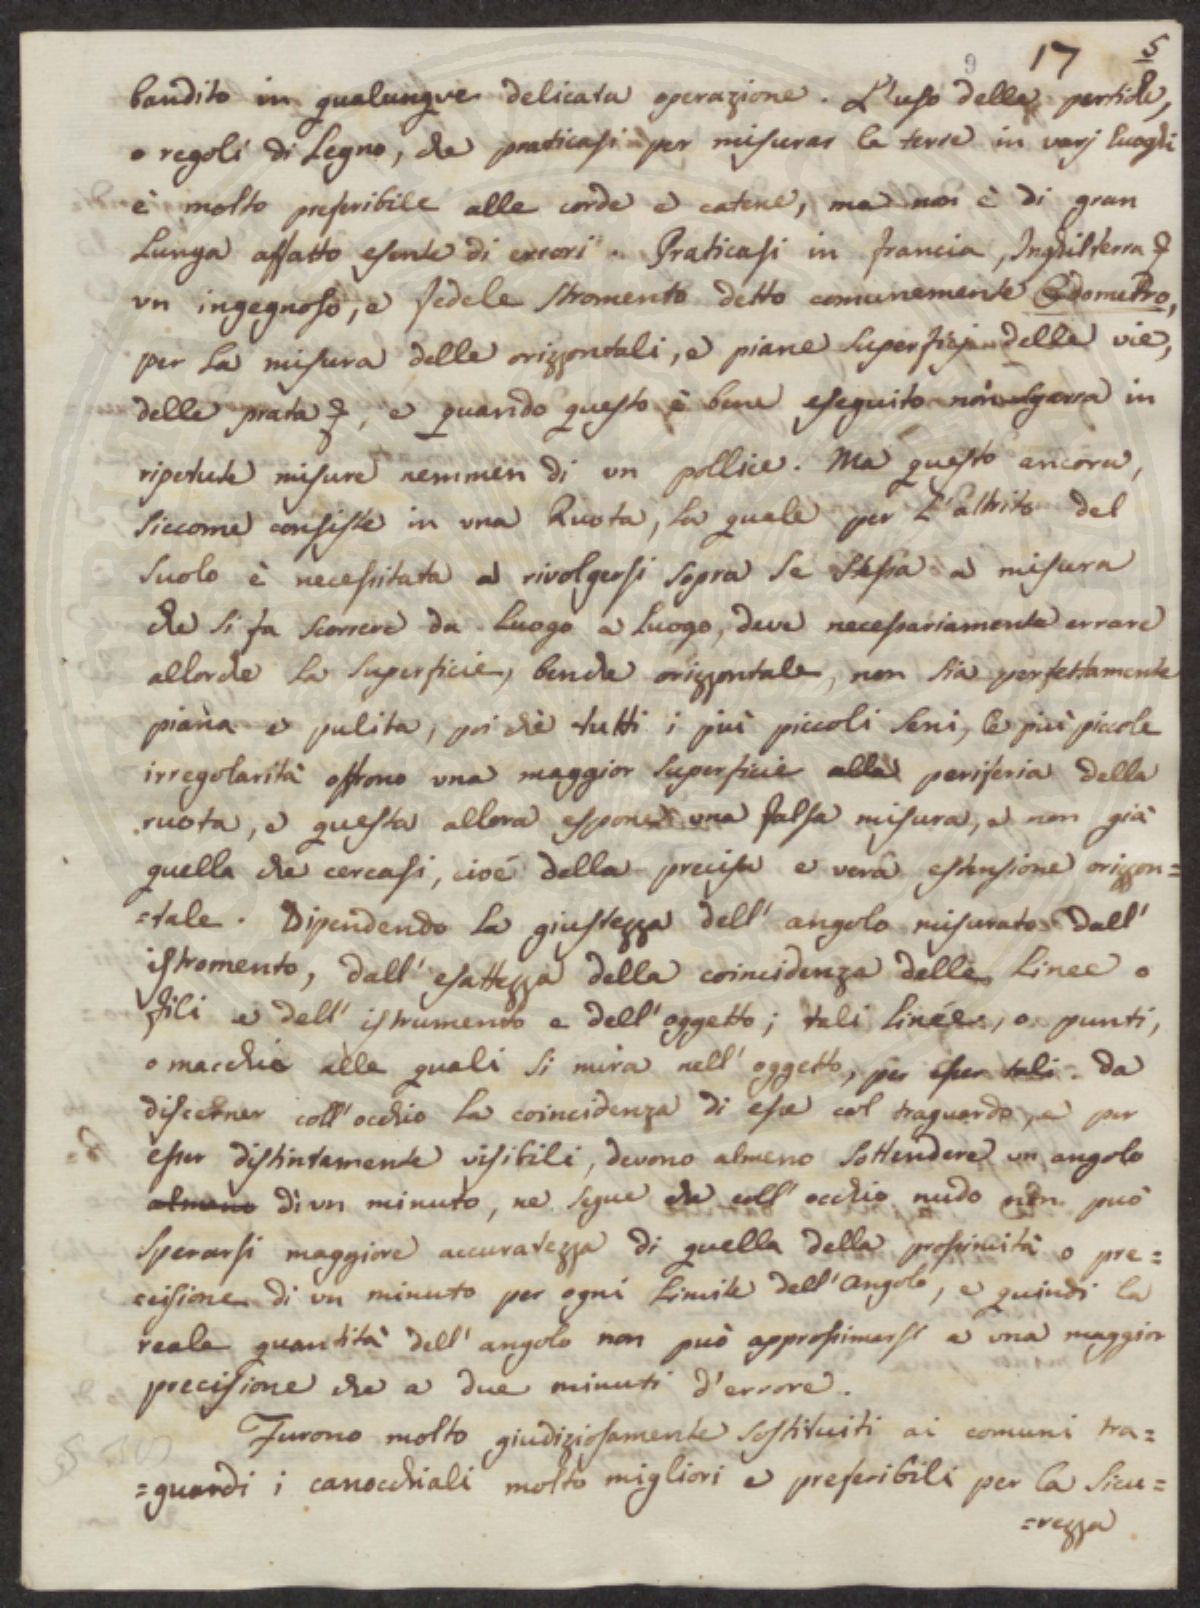 17 5
bandito in qualunque delicata operazione. L'uso delle pertiche,
o regoli di Legno, che praticasi per misurar le terre in varj luoghi
è molto preferibile alle corde e catene, ma non è di gran
Lunga affatto esente di errori. Praticasi in francia, Inghilterra &
vn ingegnoso, e fedele stromento detto comunemente Odometro,
per La misura delle orizzontali, e piane superficj delle vie,
delle prata &, e quando questo è bene eseguito non sgarra in
ripetute misure nemmen di vn pollice. Ma questo ancora,
siccome consiste in vna Ruota, La quale per L'attrito del
suolo è necessitata a rivolgersi sopra se stessa a misura
che si fa scorrere da Luogo a Luogo, deve necessariamente errare
allorche La superficie, benche orizzontale, non sia perfettamente
piana e pulita, poi chè tutti i più piccoli seni, le più piccole
irregolarità offrono vna maggior superficie alla periferia della
ruota, e questa allora espone vna falsa misura, e non già
quella che cercasi, cioè della precisa e vera estensione orizzon=
=tale. Dipendendo La giustezza dell' angolo misurato dall'
istromento, dall' esattezza della coincidenza delle Linee o
fili e dell' istrumento e dell' oggetto; tali Linee, o punti,
o macchie alle quali si mira nell' oggetto, per esser tali da
discerner coll' occhio La coincidenza di esse col traguardo, e per
esser distintamente visibili, devono almeno sottendere vn angolo
almeno di vn minuto, ne segue che coll' occhio nudo non può
sperarsi maggiore accuratezza di quella della prossimità o pre=
=cisione di vn minuto per ogni Limite dell' Angolo, e quindi la
reale quantità dell' angolo non può approssimarsi a vna maggior
precisione che a due minuti d'errore.
Furono molto giudiziosamente sostituiti ai comuni tra=
=guardi i canocchiali molto migliori e preferibili per la sicu=
=rezza